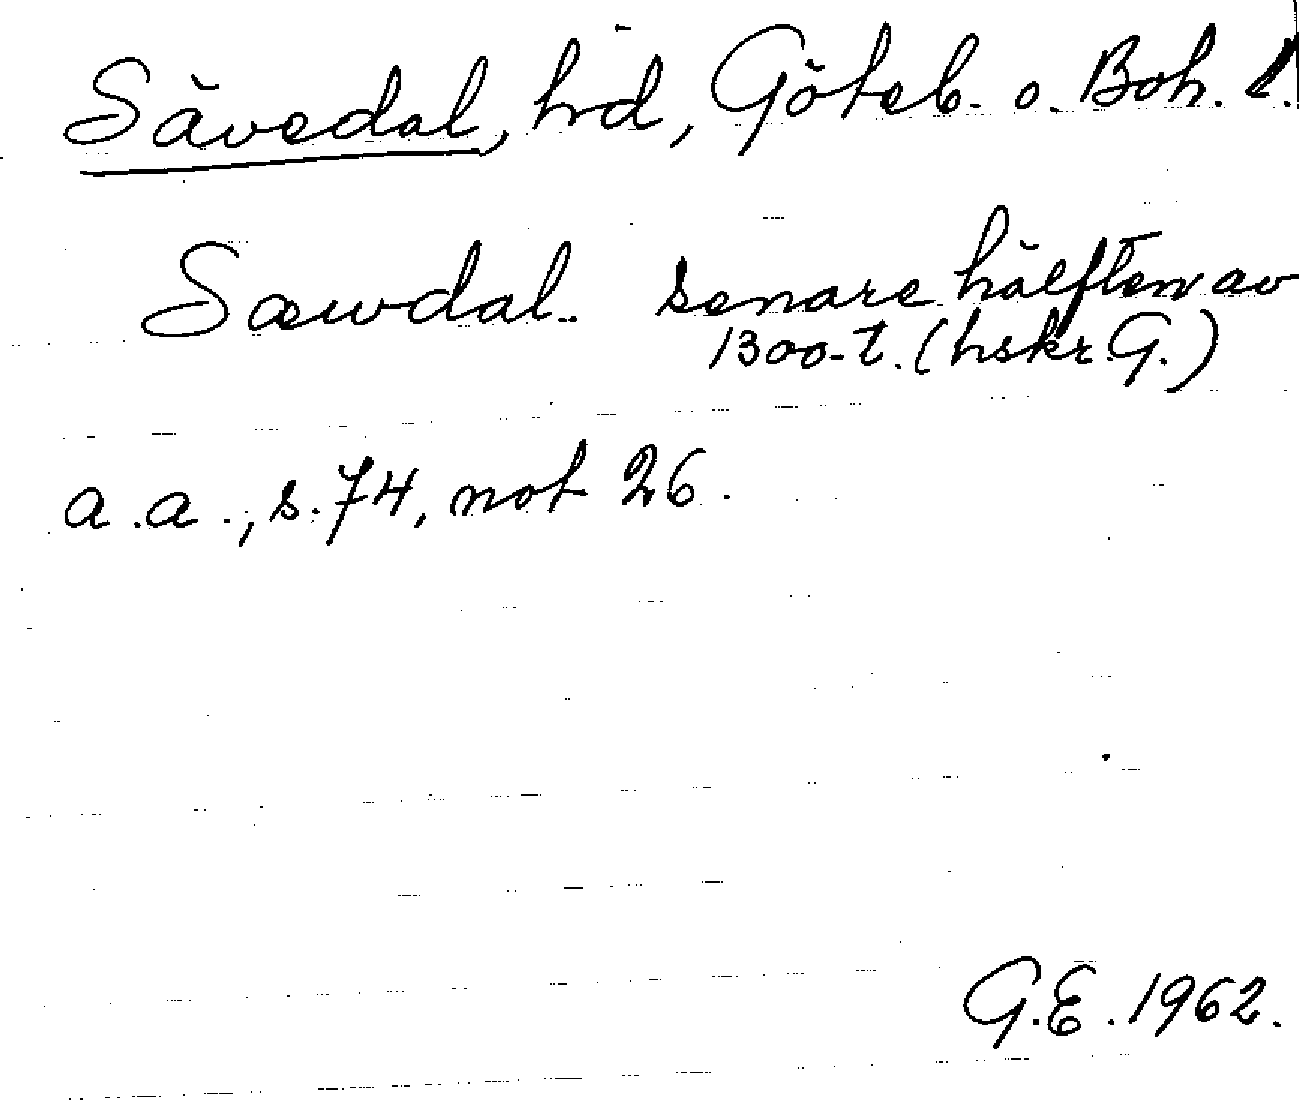 Sävedal, hd, Göteb. o. Boh. l.
Sæwdal. senare hälften av
1300-t. (hskr. G.)
a. a., s. 74, not 26.
G.E. 1962.